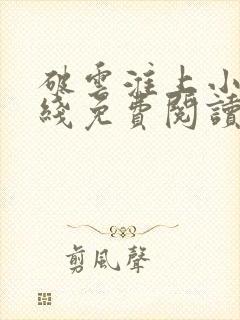 破雲淮上小
綫免費閱讀
剪風聲